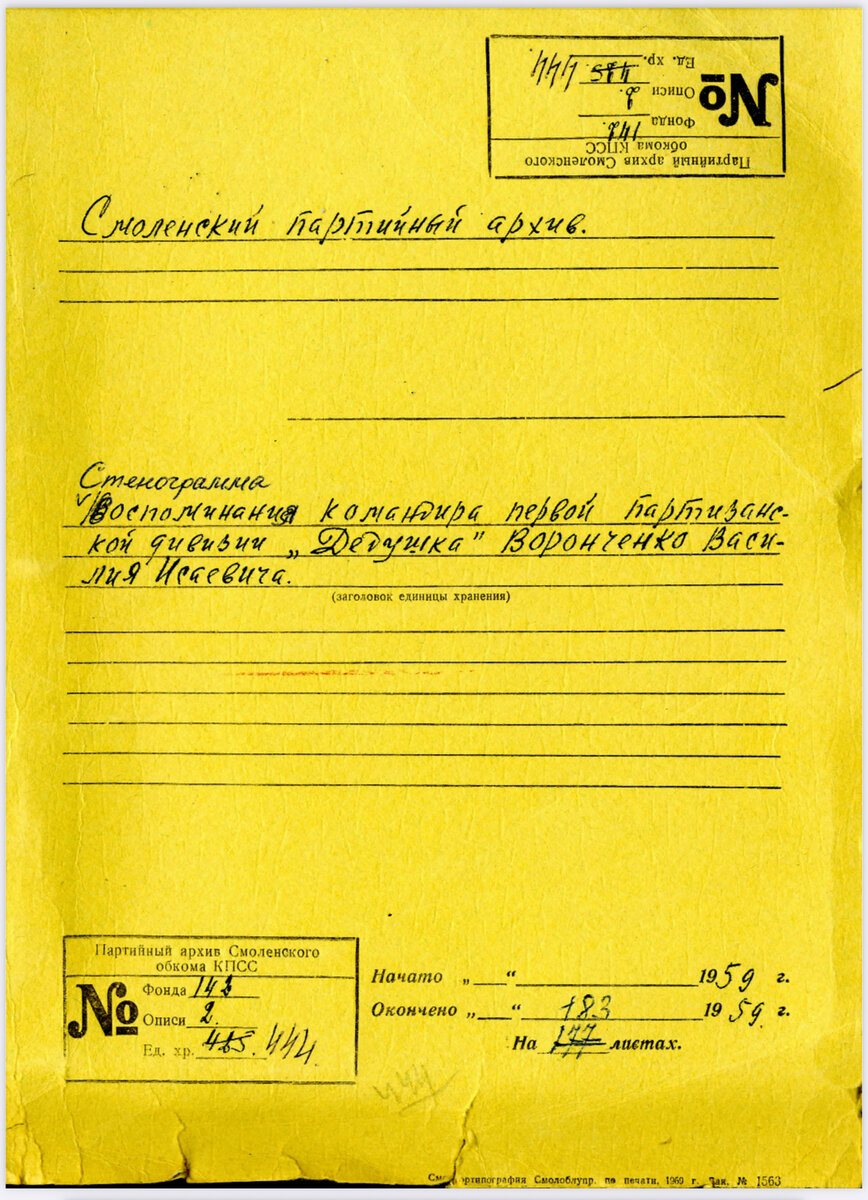 Партийный архив Смоленского
обкома КПСС
№
Фонда 142
Описи 2.
Ед. хр. 444
Смоленский партийный архив.
Стенограмма
Воспоминания командира первой партизанс-
кой дивизии „Дедушка" Воронченко Васи-
лия Исаевича.
(заголовок единицы хранения)
Партийный архив Смоленского
обкома КПСС
№
Фонда 142
Описи 2.
Ед. хр. 485. 444
Начато „ “ 1959 г.
Окончено „ “ 1959 г.
183
На 177 листах.
444
по печати, 1960 г. Зак. № 1563